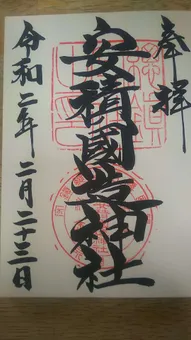 奉拝
安積國造神社
令和二年二月二十三日